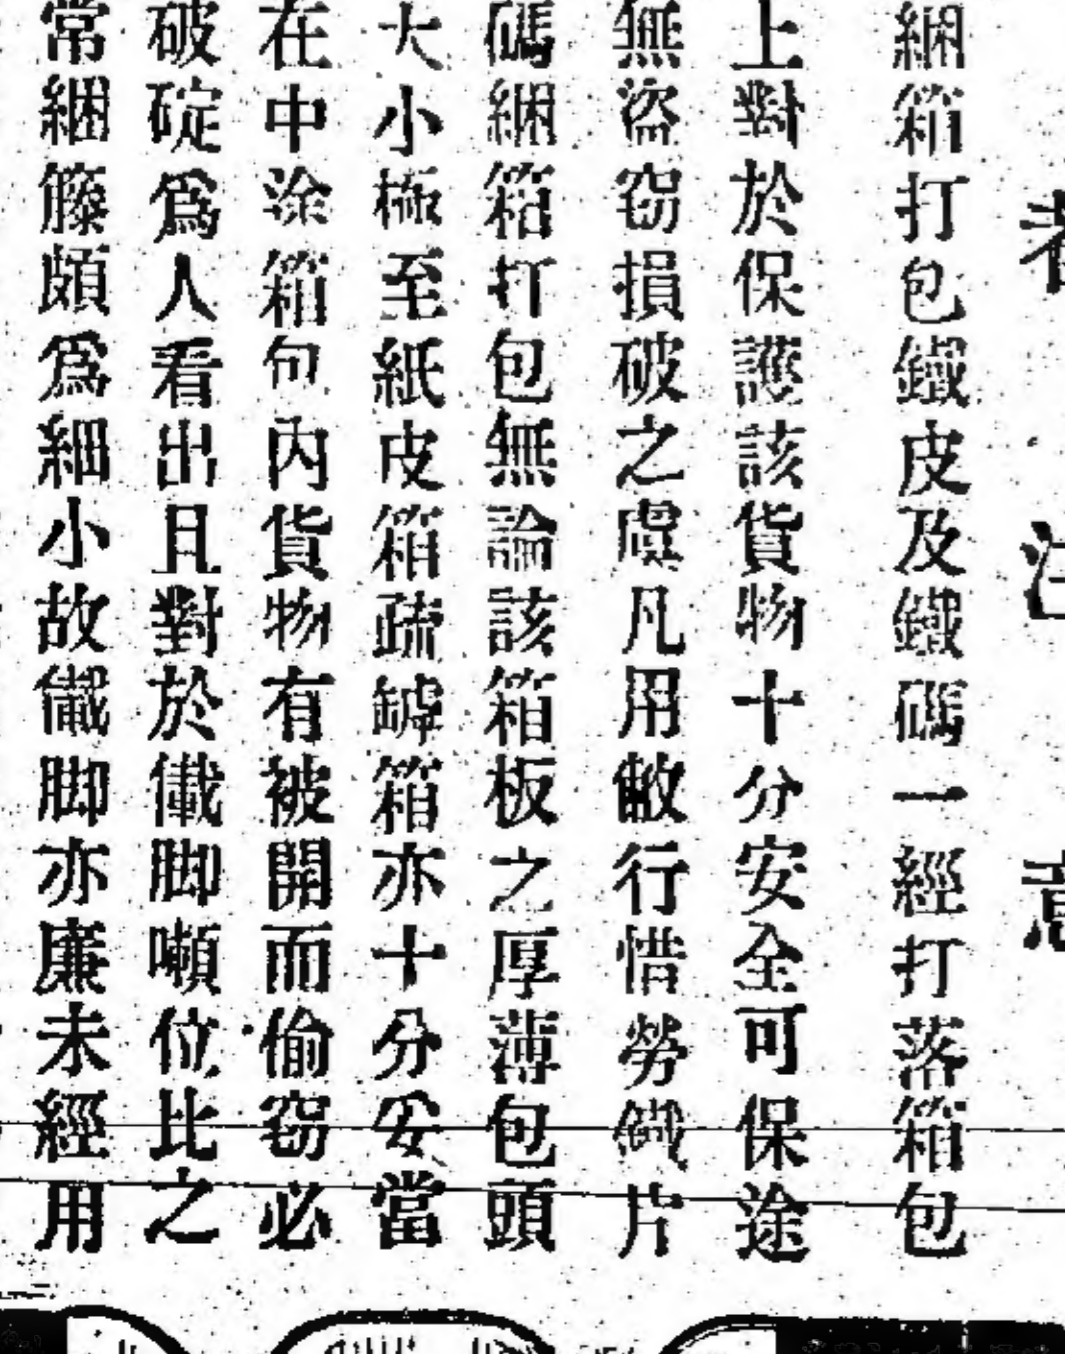 者注意
綑箱打包鐵皮及鐵碼一經打落箱包
上對於保護該貨物十分安全可保途
無盜窃損破之虞凡用敝行惜勞鐵片
碼綑箱打包無論該箱板之厚薄包頭
大小極至紙皮箱疏罅箱亦十分妥當
在中途箱包內貨物有被開而偷窃必
破碇爲人看出且對於儎脚噸位比之
常綑籐頗爲細小故儎脚亦廉未經用